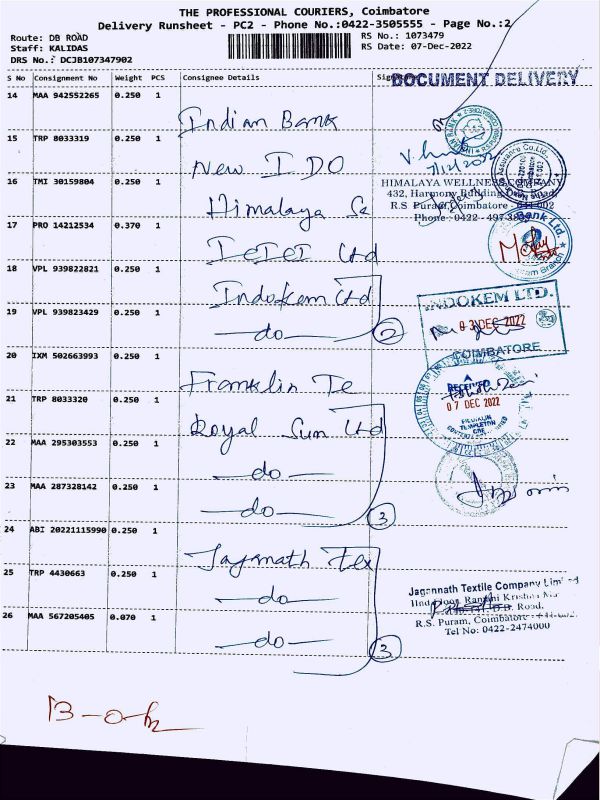 THE PROFESSIONAL COURIERS, Coimbatore
Delivery Runsheet - PC2 - Phone No.:0422-3505555 - Page No.:2
Route: DB ROAD
Staff: KALIDAS
DRS No.: DCJB107347902
RS No.: 1073479
RS Date: 07-Dec-2022
S No Consignment No Weight PCS Consignee Details
DOCUMENT DELIVERY
14 MAA 942552265 0.250 1 Indian Bank
15 TRP 8033319 0.250 1 New I DO
16 TMI 30159804 0.250 1 Himalaya
HIMALAYA WELLNESS COMPANY
432, Harmony Building, D.B. Road,
R.S. Puram, Coimbatore - 641 002
Phone: 0422 - 497
17 PRO 14212534 0.370 1 Ltd
Bank Ltd
Branch
18 VPL 939822821 0.250 1 Indokem Ltd
19 VPL 939823429 0.250 1 -do- 2
INDOKEM LTD.
03 DEC 2022
COIMBATORE
20 IXM 502663993 0.250 1 Franklin Te
RECEIVED
07 DEC 2022
FRANKLIN
TEMPLETON
21 TRP 8033320 0.250 1 Royal Sun Ltd
22 MAA 295303553 0.250 1 -do-
23 MAA 287328142 0.250 1 -do- 3
24 ABI 20221115990 0.250 1 Jaganath Tex
25 TRP 4430663 0.250 1 -do-
26 MAA 567205405 0.070 1 -do- 3
Jagannath Textile Company Limited
IInd Floor,
D.B. Road,
R.S. Puram, Coimbatore
Tel No: 0422-2474000